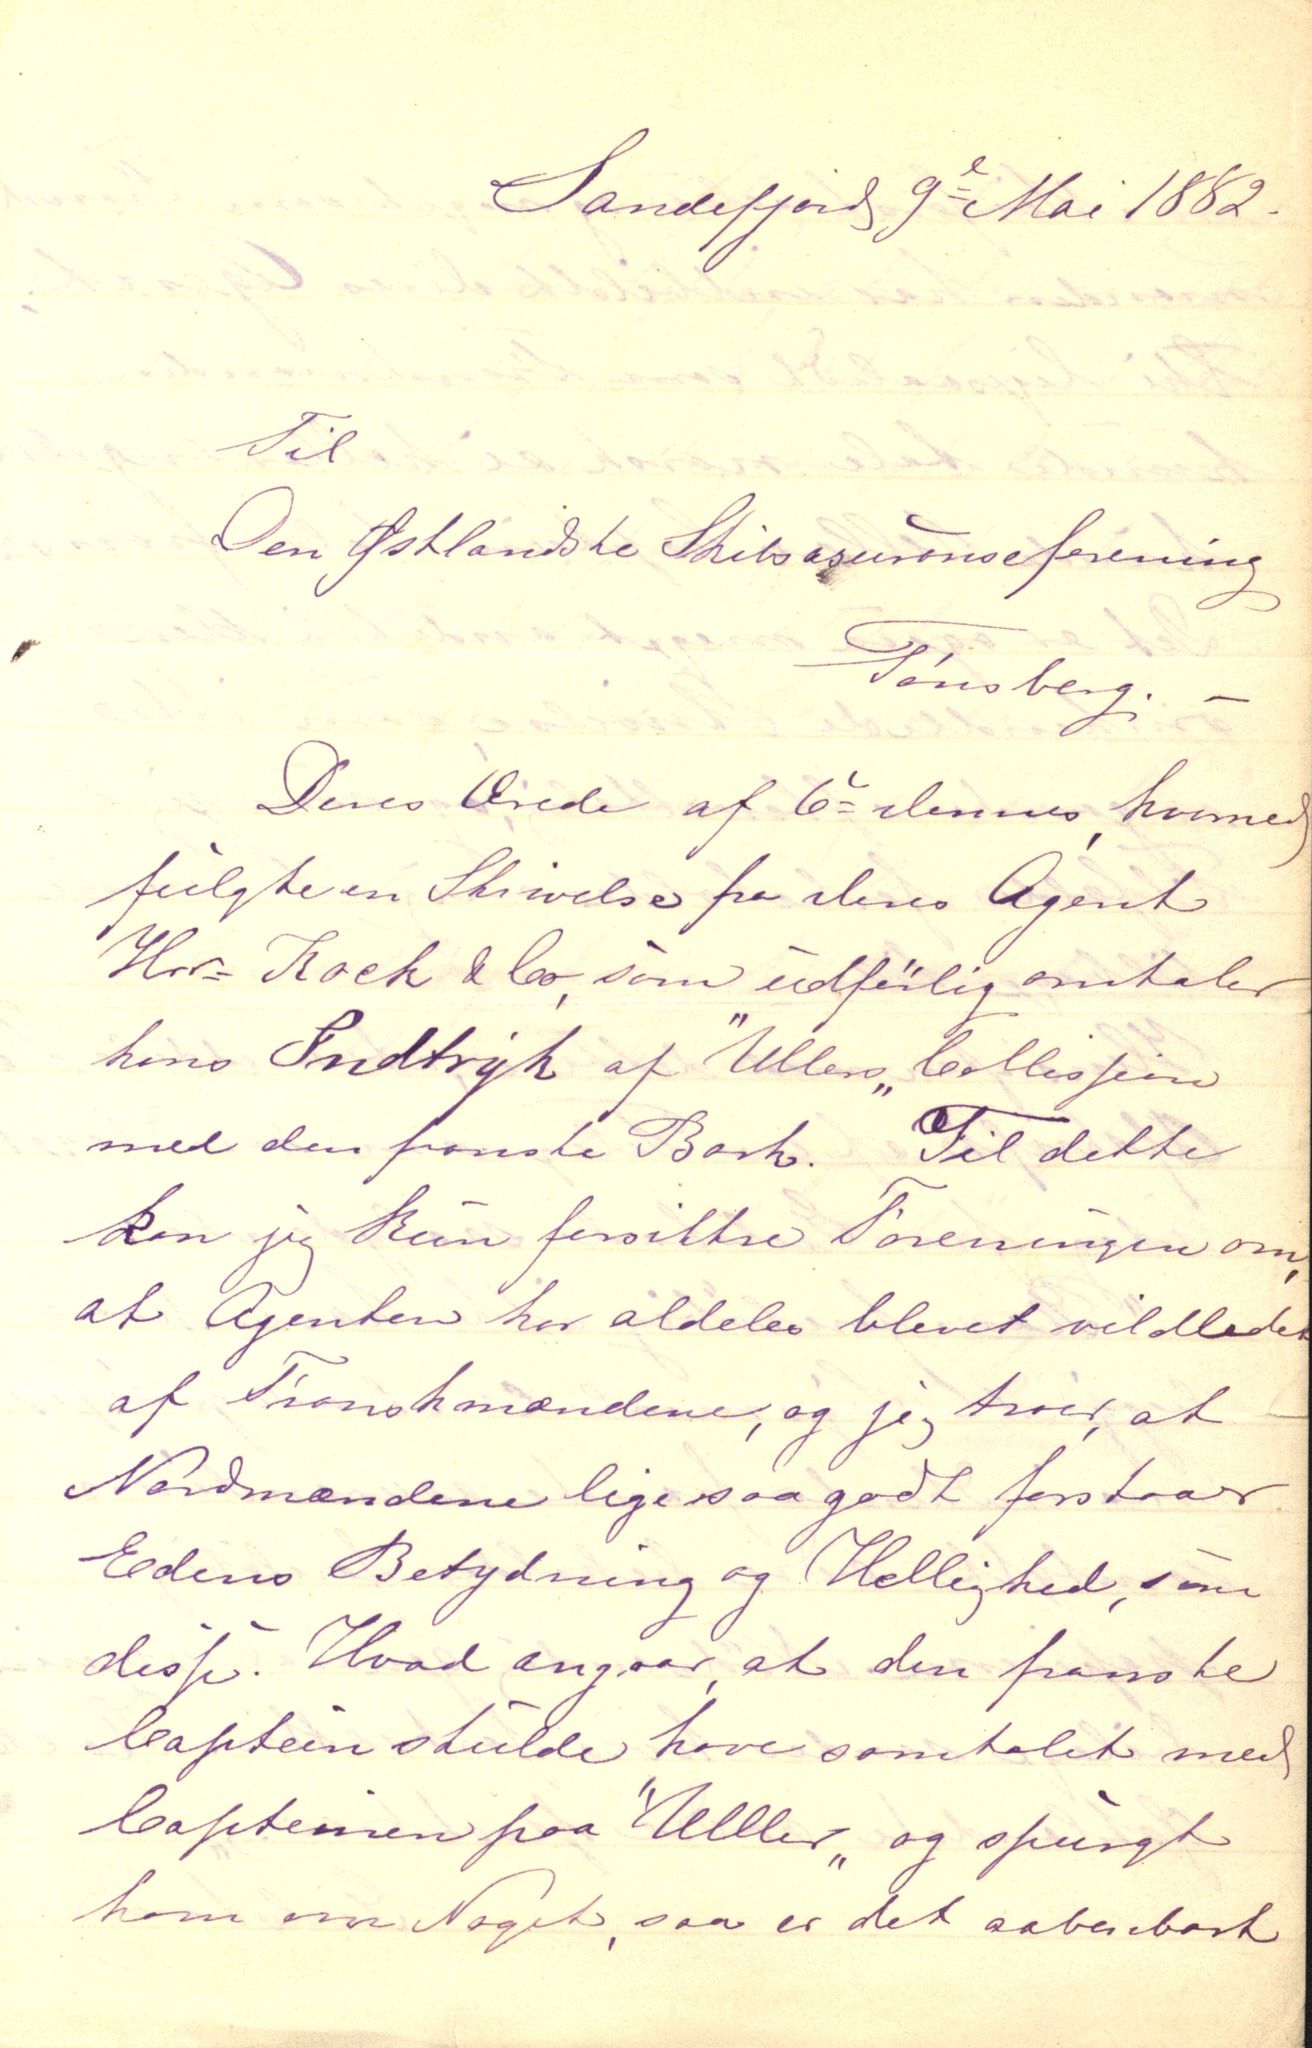 Sandefjord 9de Mai 1882.
Til
Den Østlandske Skibsasuranseforening
Tønsberg. -
Deres Ærede af 6te dennes, hvormed
fulgte en Skrivelse fra deres Agent
Hrr= Kock & Co, som udførlig omtaler
hans Indtryk af "Ullers„ Collisjon
med den franske Bark. Til dette
kan jeg kun forsikkre Foreningen om,
at Agenten har aldeles blevet vildledet
af Franskmændene, og jeg troer, at
Nordmændene ligesaa godt forstaar
Edens Betydning og Hellighed, som
disse. Hvad angaar, at den franske
Captein skulde have samtalet med
Capteinen paa "Uller„ og spurgt
ham om Noget, saa er det aabenbart